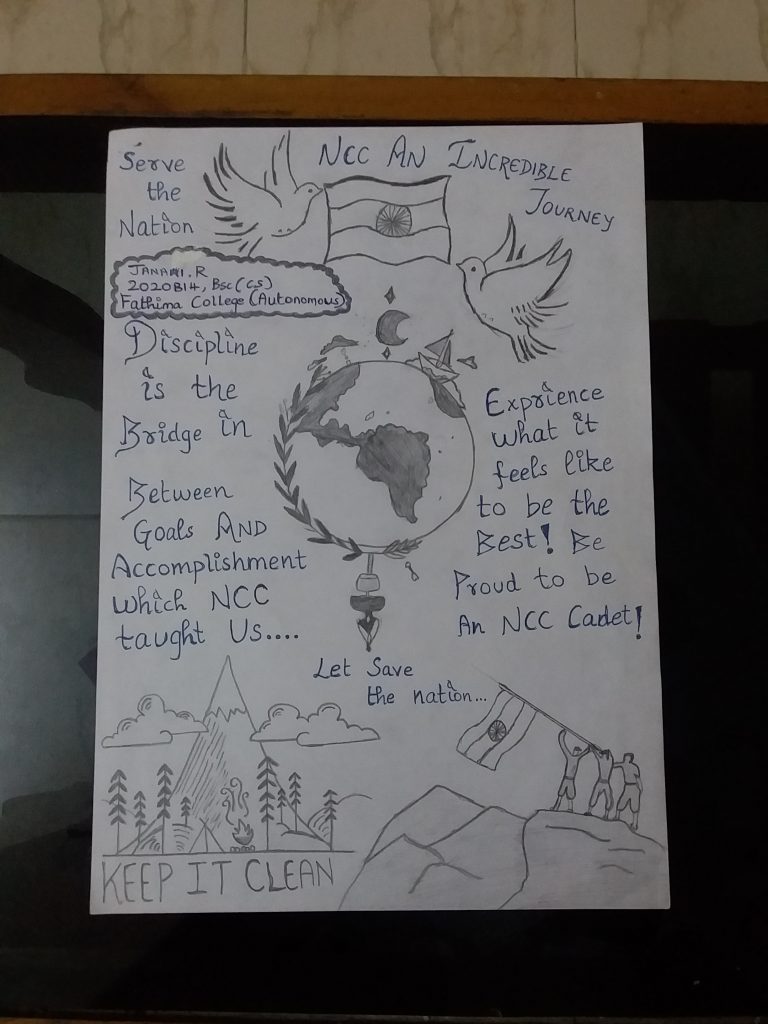 NCC AN INCREDIBLE
JOURNEY
Serve
the
Nation
JANANI.R
2020B14, Bsc(CS)
Fathima College (Autonomous)
Discipline
is the
Bridge in
Between
Goals AND
Accomplishment
which NCC
taught Us....
Exprience
what it
feels like
to be the
Best! Be
Proud to be
An NCC Cadet!
Let Save
the nation...
KEEP IT CLEAN